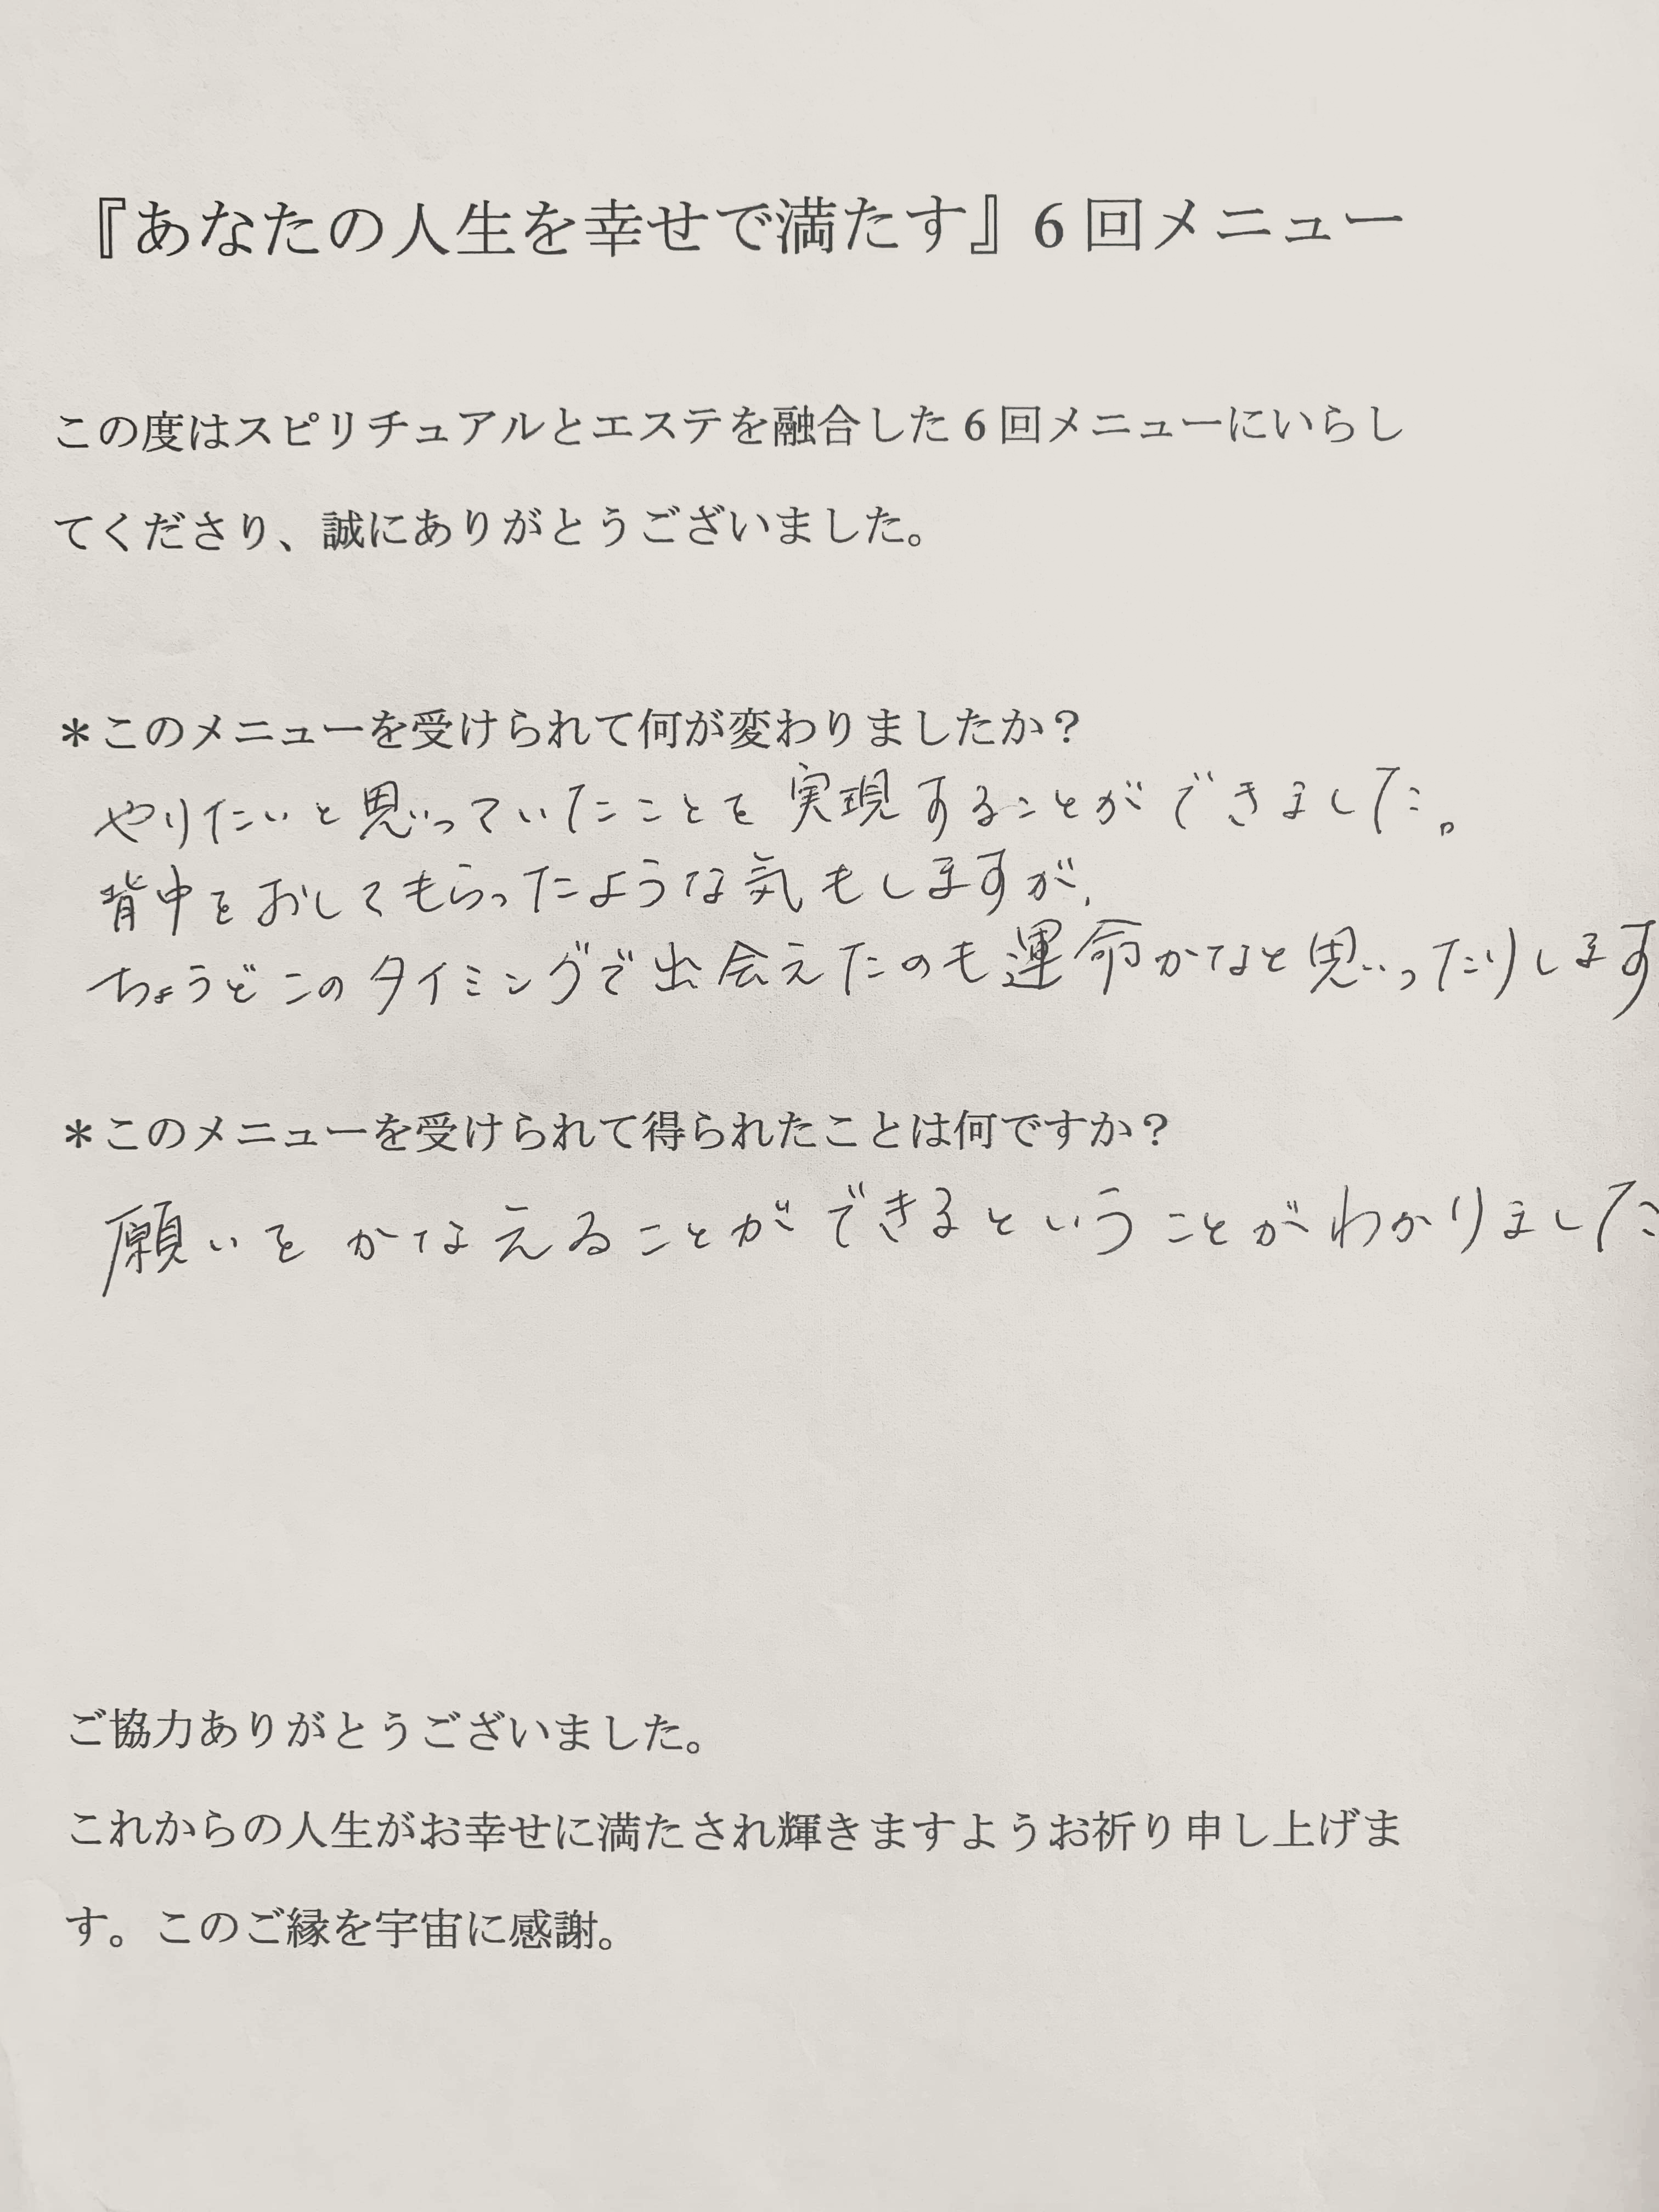 『あなたの人生を幸せで満たす』6回メニュー
この度はスピリチュアルとエステを融合した6回メニューにいらし
てくださり、誠にありがとうございました。
＊このメニューを受けられて何が変わりましたか？
やりたいと思っていたことを実現することができました。
背中をおしてもらったような気もしますが、
ちょうどこのタイミングで出会えたのも運命かなと思ったりします
＊このメニューを受けられて得られたことは何ですか？
願いをかなえることができるということがわかりました
ご協力ありがとうございました。
これからの人生がお幸せに満たされ輝きますようお祈り申し上げま
す。このご縁を宇宙に感謝。